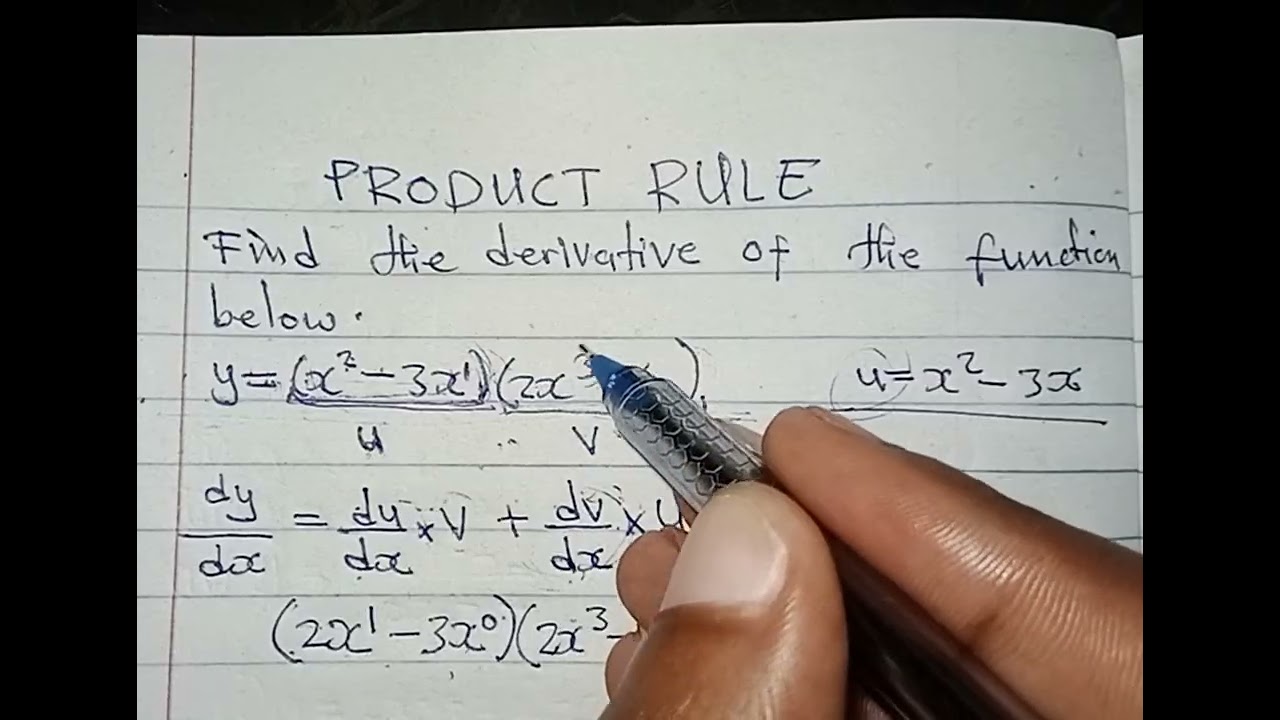 PRODUCT RULE
Find the derivative of the function
below.
y = (x² − 3x¹)(2x )
u = x² − 3x
u v
dy/dx = du/dx × V + dv/dx × U
(2x¹ − 3x⁰)(2x³ −